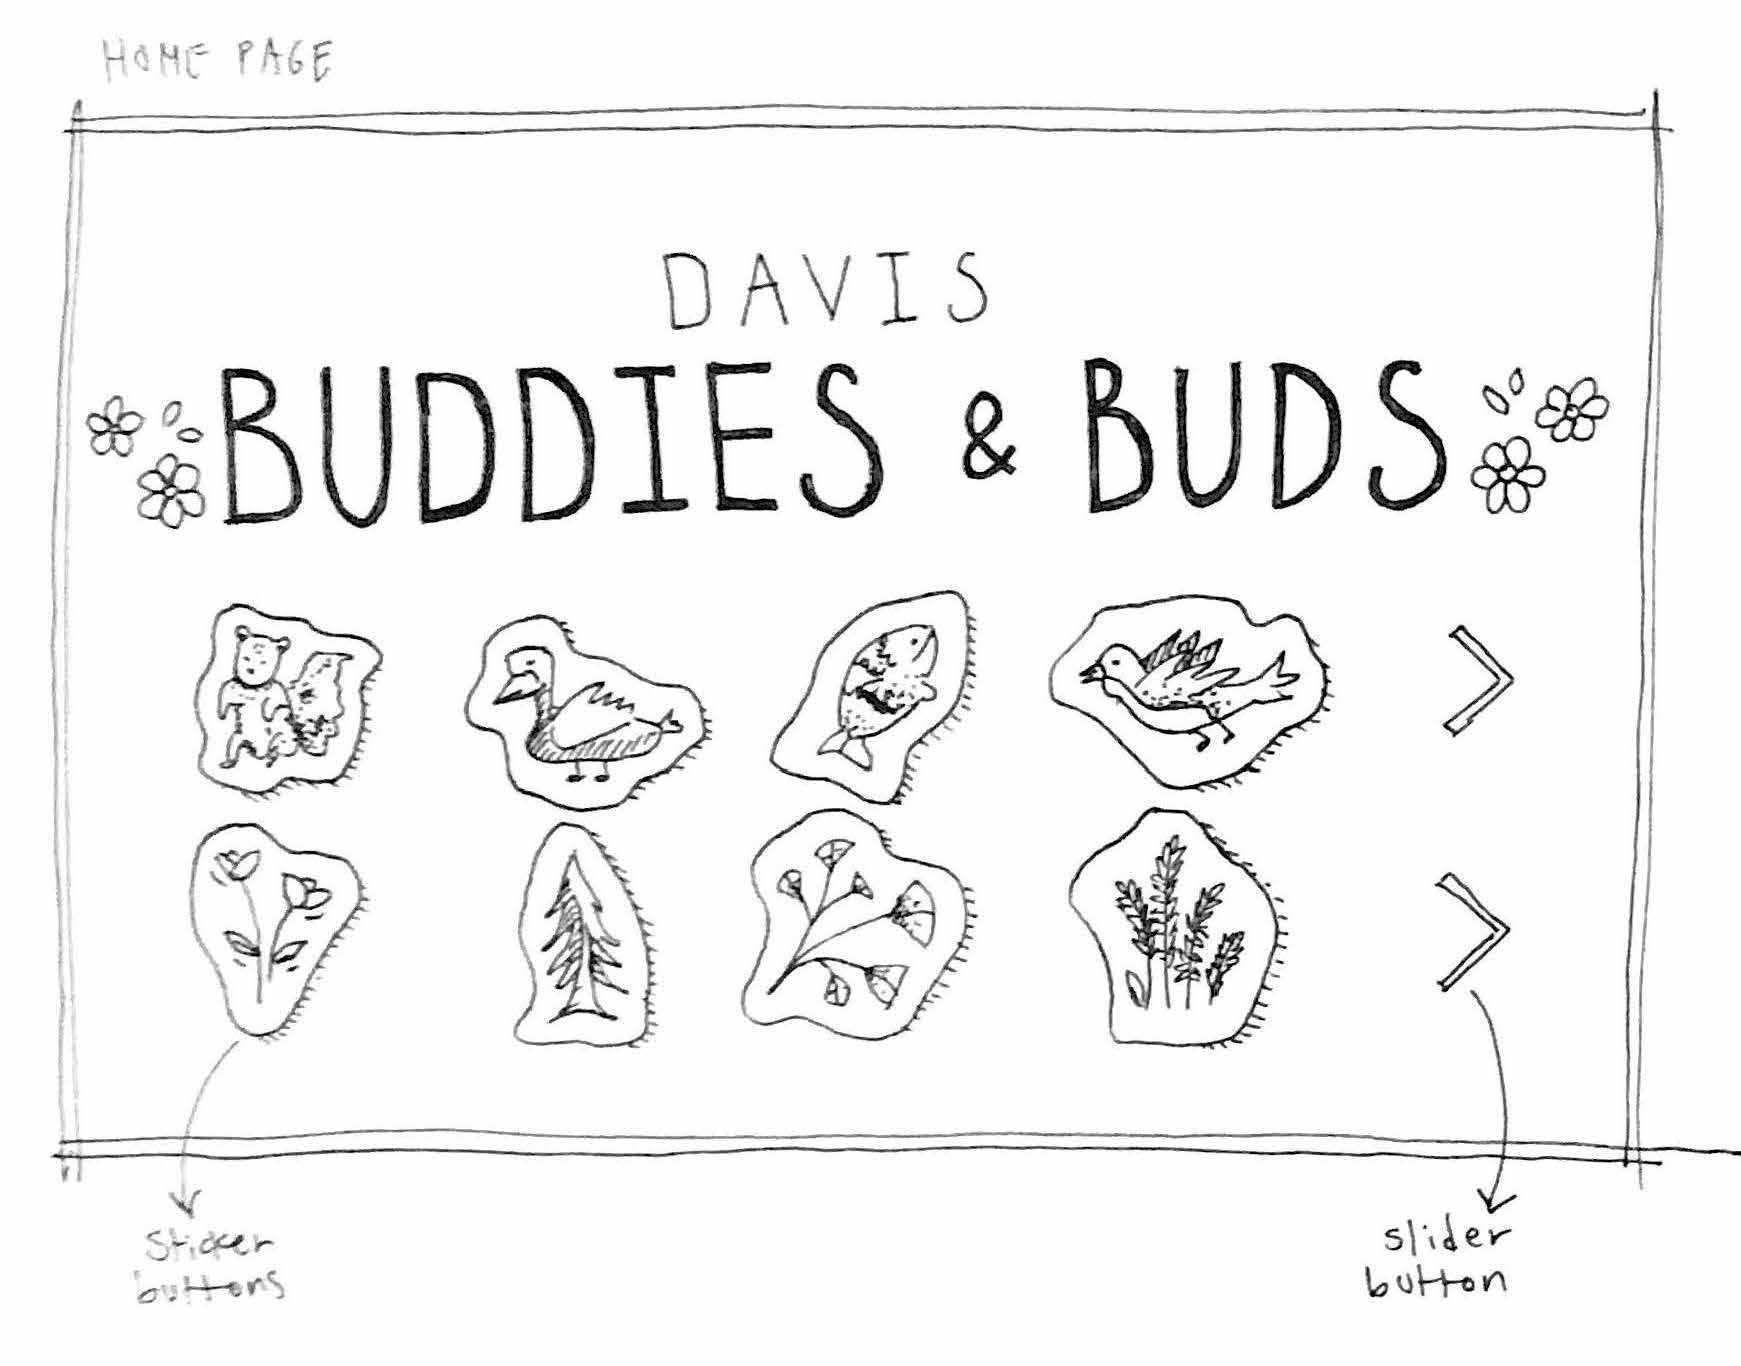 HOME PAGE
DAVIS
BUDDIES & BUDS
sticker
buttons
slider
button